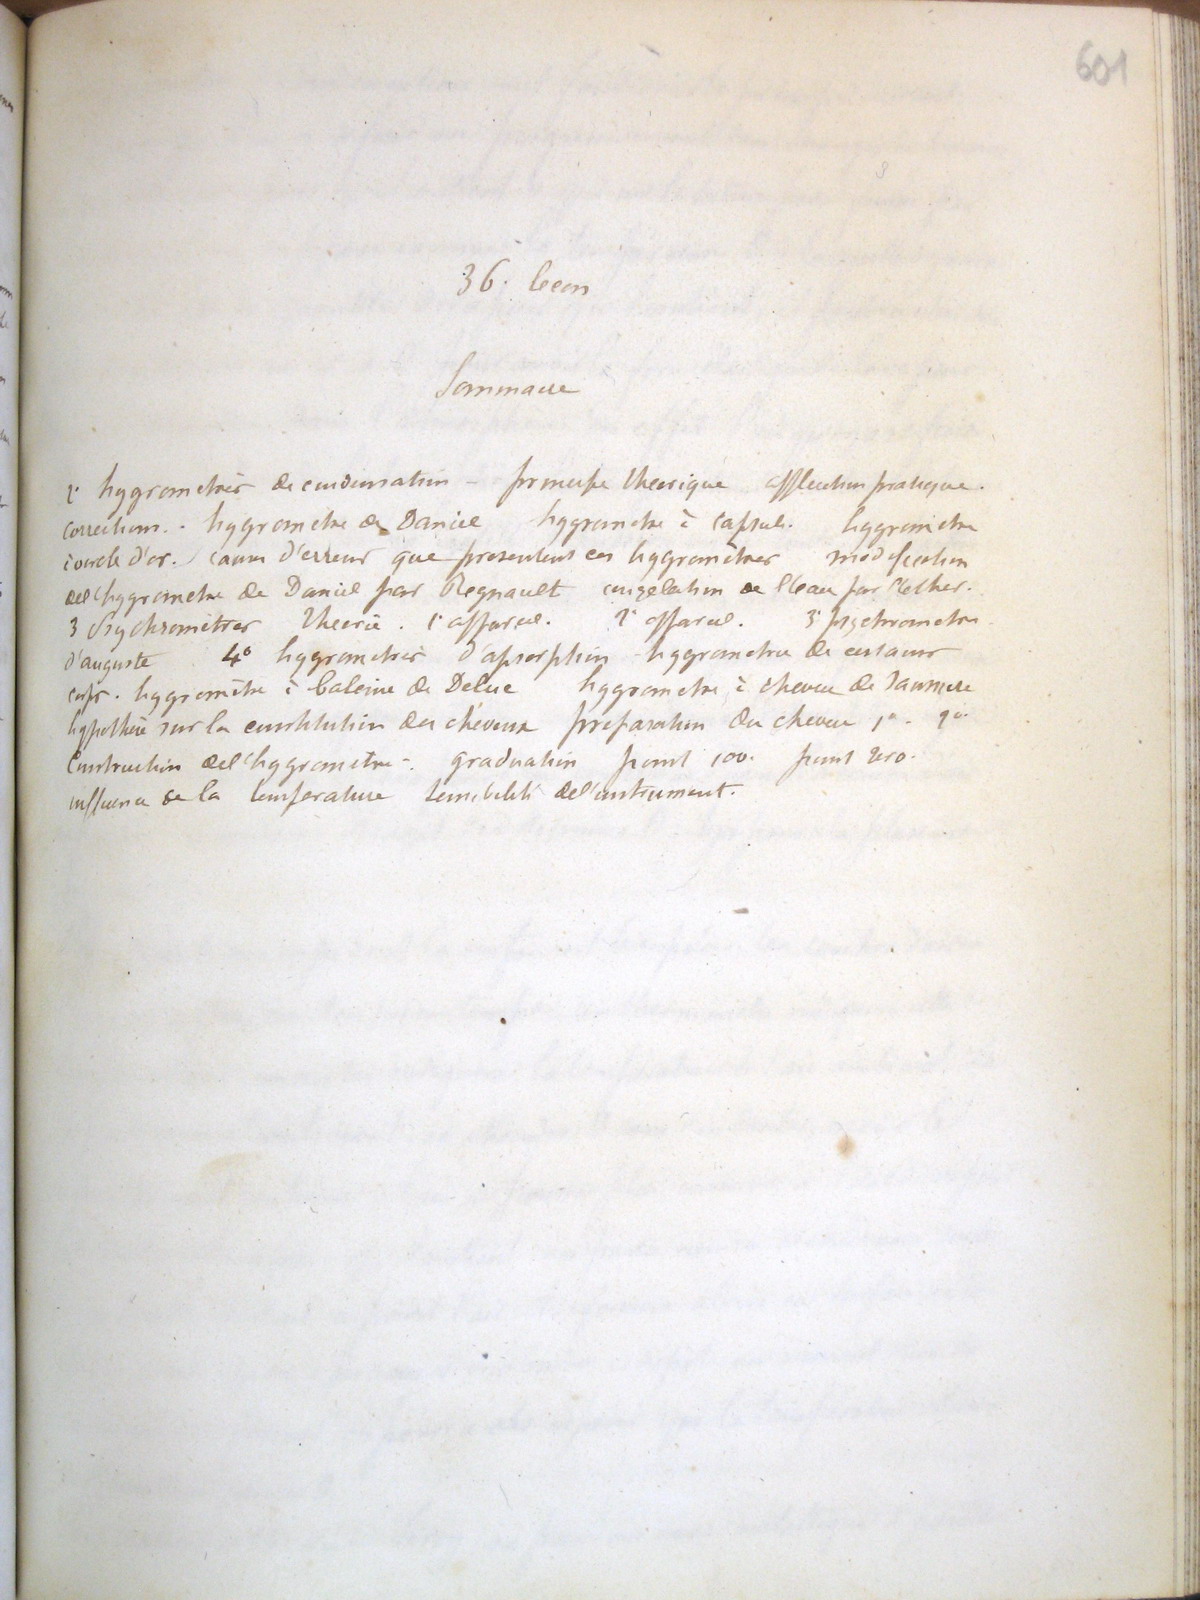 601
36. lecon
Sommaire
2° hygrometres de condensation - principe theorique application pratique.
corrections. - hygrometre de Daniel hygrometre à capsule. hygrometre
à cercle d'or. causes d'erreur que presentent ces hygromètres modification
de l'hygrometre de Daniel par Regnault congelation de l'eau par l'ether.
3 Psychromètres theorie. 1° appareil. 2° appareil. 3° psychrometre
d'auguste 4° hygrometres d'absorption - hygrometrie de certains
corps. hygromètre à baleine de Deluc hygrometre à cheveu de Saussure
hypothèse sur la constitution des cheveux preparation du cheveu 1°. 2°.
Construction de l'hygrometre -. graduation point 100. point zero.
influence de la temperature sensibilité de l'instrument.